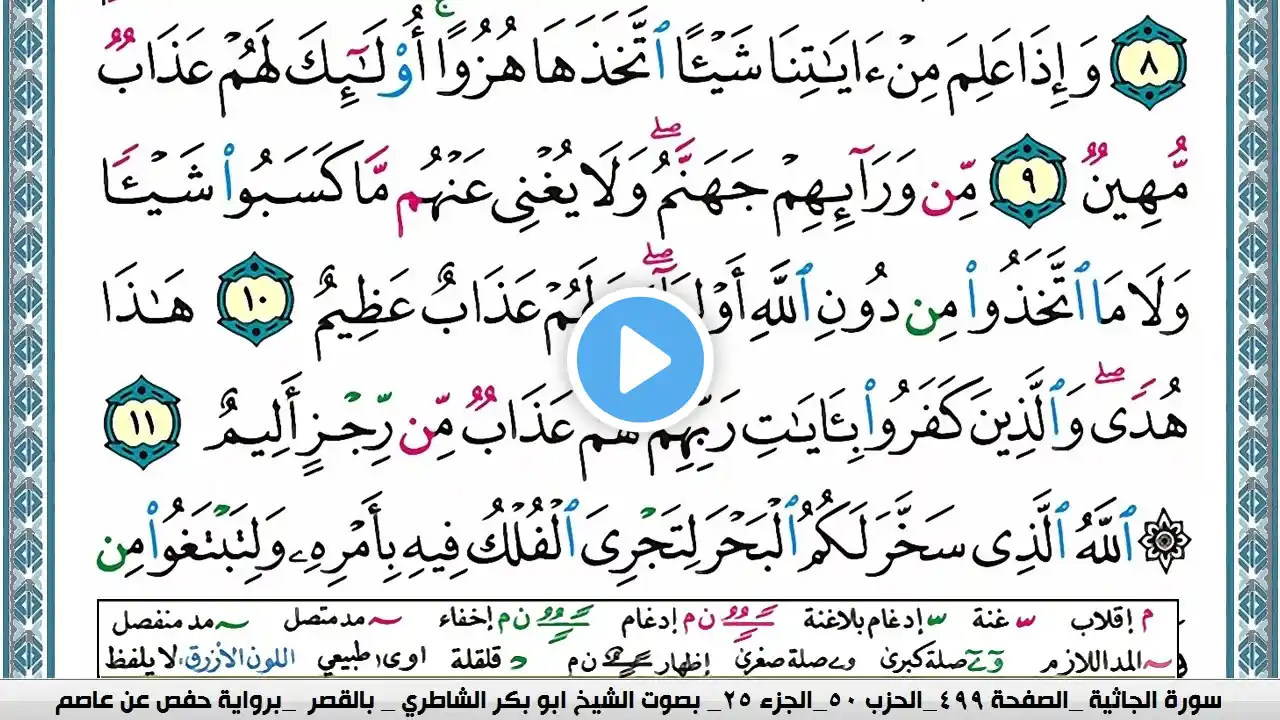 ٨ وَإِذَا عَلِمَ مِنْ ءَايَٰتِنَا شَيْـًٔا ٱتَّخَذَهَا هُزُوًا ۚ أُو۟لَٰٓئِكَ لَهُمْ عَذَابٌ
مُّهِينٌ ٩ مِّن وَرَآئِهِمْ جَهَنَّمُ ۖ وَلَا يُغْنِى عَنْهُم مَّا كَسَبُوا۟ شَيْـًٔا
وَلَا مَا ٱتَّخَذُوا۟ مِن دُونِ ٱللَّهِ أَوْلِيَآءَ ۖ وَلَهُمْ عَذَابٌ عَظِيمٌ ١٠ هَٰذَا
هُدًى ۖ وَٱلَّذِينَ كَفَرُوا۟ بِـَٔايَٰتِ رَبِّهِمْ لَهُمْ عَذَابٌ مِّن رِّجْزٍ أَلِيمٌ ١١
۞ ٱللَّهُ ٱلَّذِى سَخَّرَ لَكُمُ ٱلْبَحْرَ لِتَجْرِىَ ٱلْفُلْكُ فِيهِ بِأَمْرِهِۦ وَلِتَبْتَغُوا۟ مِن
م إقلاب س غنة س إدغام بلاغنة ن م إدغام ن م إخفاء ~ مد متصل ~ مد منفصل
~ المد اللازم و ے صلة كبرى و ے صلة صغرى إظهار ن م د قلقلة اوى طبيعي اللون الأزرق، لا يلفظ
سورة الجاثية _الصفحة ٤٩٩_الحزب ٥٠_الجزء ٢٥_ بصوت الشيخ ابو بكر الشاطري _ بالقصر _برواية حفص عن عاصم